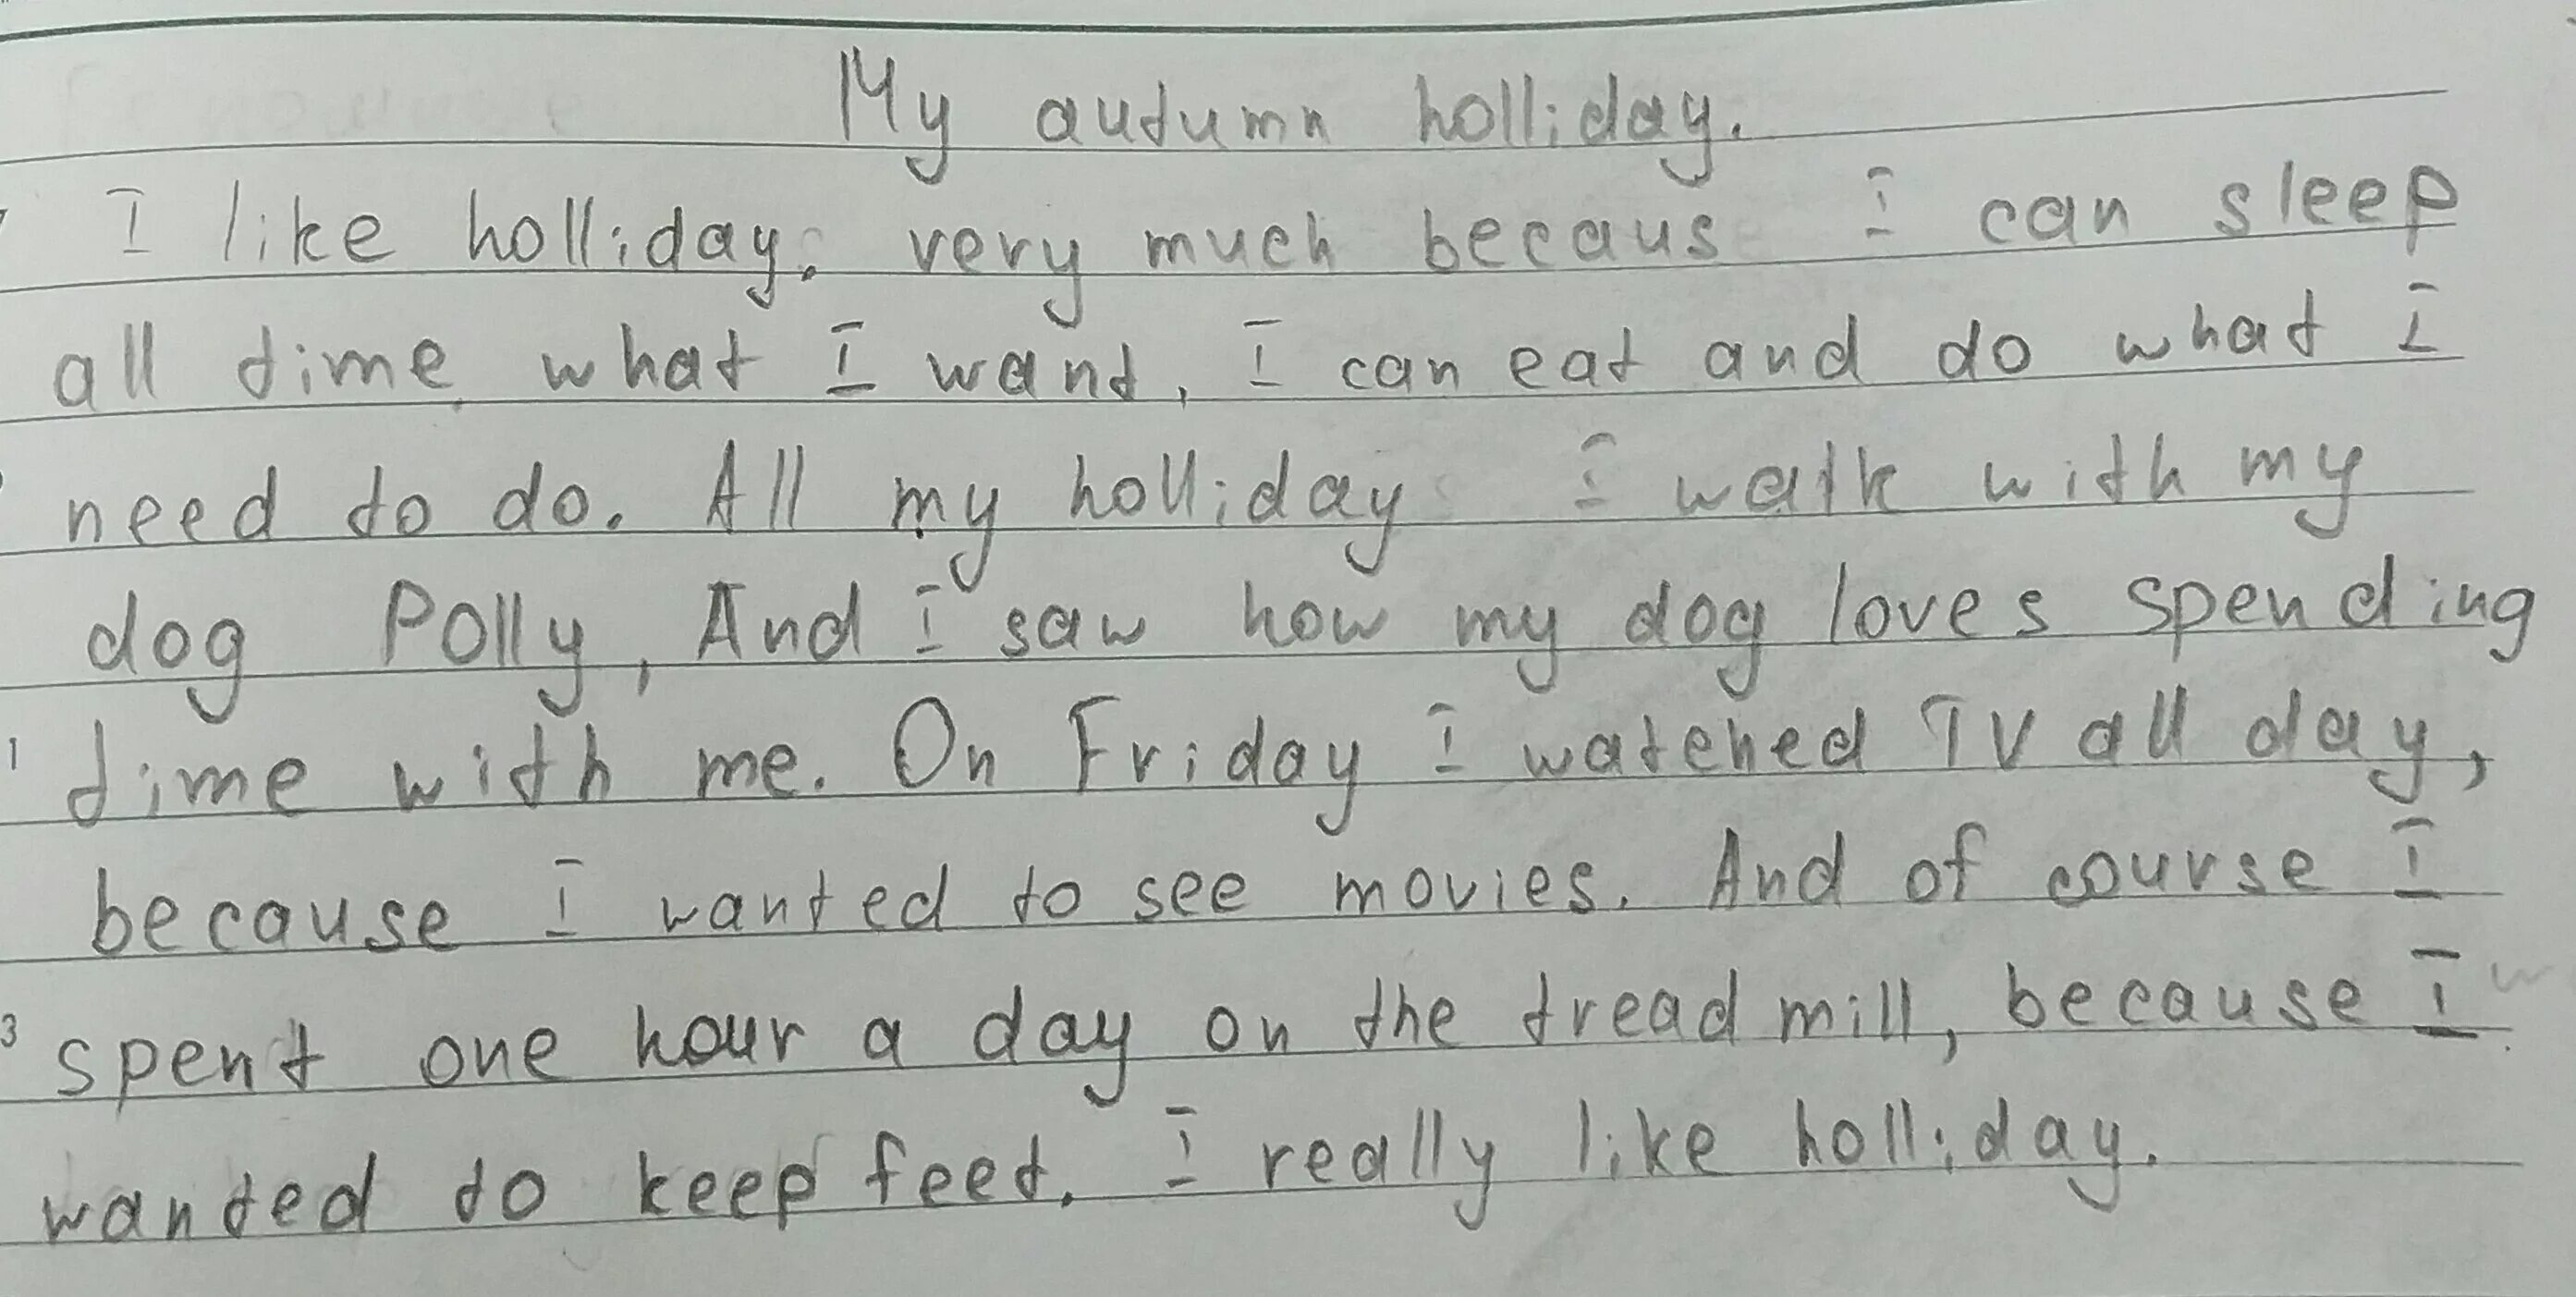 My autumn holliday.
I like holliday. very much becaus I can sleep
all time what I want, I can eat and do what I
need to do. All my holliday I walk with my
dog Polly, And I saw how my dog loves spending
time with me. On Friday I watched TV all day,
because I wanted to see movies. And of course I
spent one hour a day on the tread mill, because I
wanted to keep feet. I really like holliday.